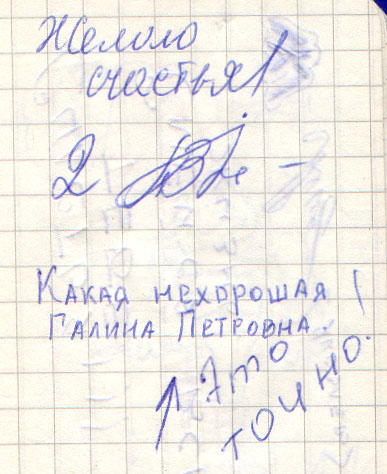 Желаю
счастья!
2 –
Какая нехорошая !
Галина Петровна.
↑ Это
точно.